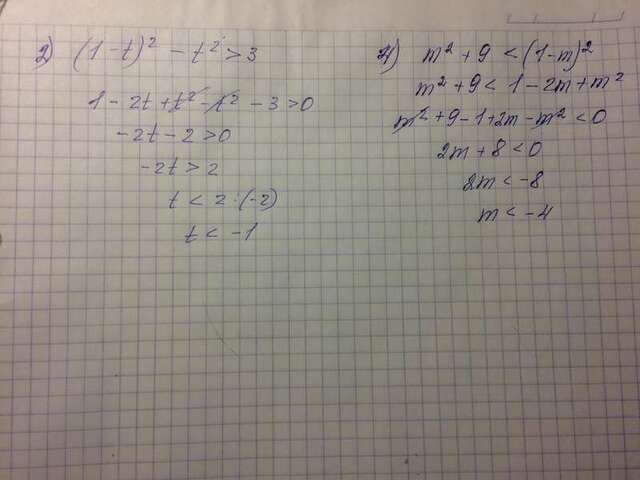 2) (1-t)² - t² > 3
1 - 2t + t² - t² - 3 > 0
-2t - 2 > 0
-2t > 2
t < 2 : (-2)
t < -1
4) m² + 9 < (1-m)²
m² + 9 < 1 - 2m + m²
m² + 9 - 1 + 2m - m² < 0
2m + 8 < 0
2m < -8
m < -4